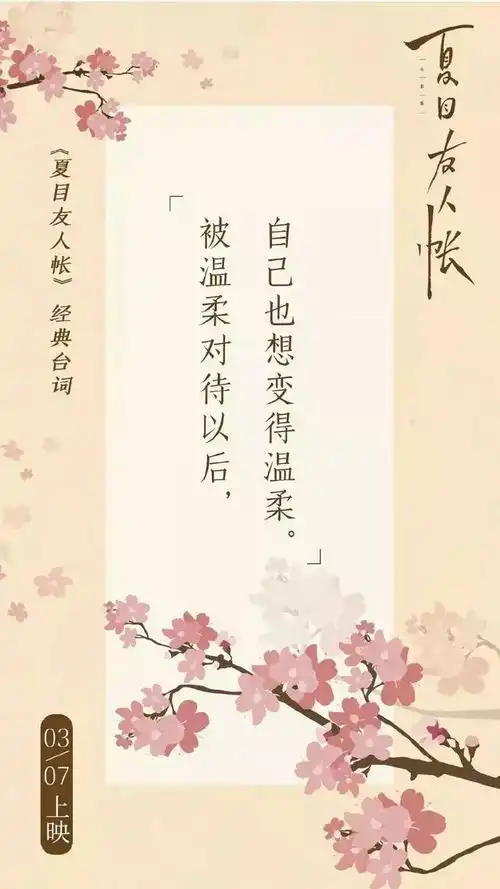 夏目友人帐
《夏目友人帐》 经典台词
「被温柔对待以后,
自己也想变得温柔。」
03/07 上映